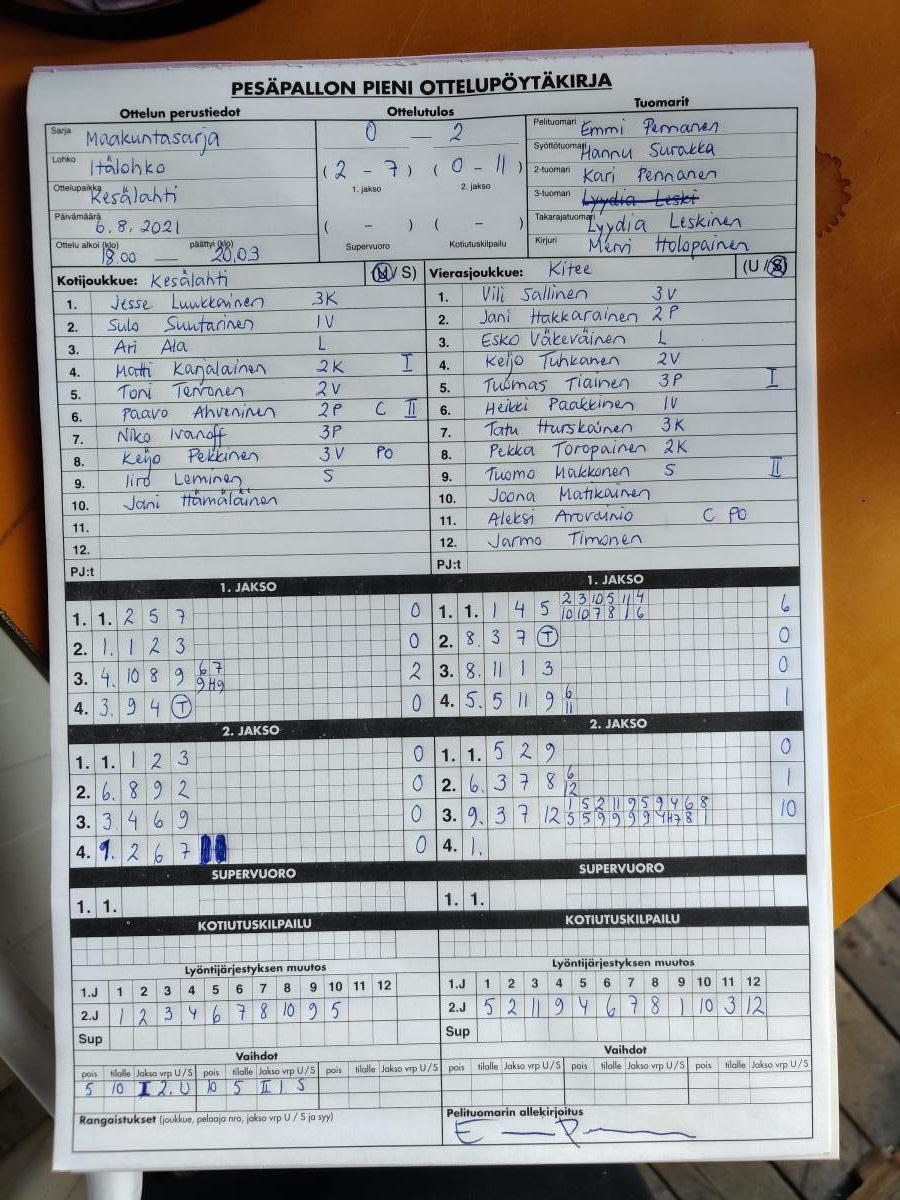 PESÄPALLON PIENI OTTELUPÖYTÄKIRJA
Ottelun perustiedot Ottelutulos Tuomarit
Sarja Maakuntasarja
Lohko Itälohko
Ottelupaikka Kesälahti
Päivämäärä 6.8.2021
Ottelu alkoi (klo) 18.00 — päättyi (klo) 20.03
0 — 2
( 2 - 7 ) ( 0 - 11 )
1. jakso 2. jakso
( - ) ( - )
Supervuoro Kotiutuskilpailu
Pelituomari Emmi Pennanen
Syöttötuomari Hannu Surakka
2-tuomari Kari Pennanen
3-tuomari Lyydia Leski
Takarajatuomari Lyydia Leskinen
Kirjuri Mervi Holopainen
Kotijoukkue: Kesälahti (U / S)
1. Jesse Luukkainen 3K
2. Sulo Suutarinen 1V
3. Ari Ala L
4. Matti Karjalainen 2K I
5. Toni Tervonen 2V
6. Paavo Ahveninen 2P C II
7. Niko Ivanoff 3P
8. Keijo Pekkinen 3V PO
9. Iiro Leminen S
10. Jani Hämäläinen
11.
12.
PJ:t
Vierasjoukkue: Kitee (U / S)
1. Vili Sallinen 3V
2. Jani Hakkarainen 2P
3. Esko Väkeväinen L
4. Keijo Tuhkanen 2V
5. Tuomas Tiainen 3P I
6. Heikki Paakkinen 1V
7. Tatu Hurskainen 3K
8. Pekka Toropainen 2K
9. Tuomo Makkonen S II
10. Joona Matikainen
11. Aleksi Arovainio C PO
12. Jarmo Timonen
PJ:t
1. JAKSO
1. 1. 2 5 7 0
2. 1. 1 2 3 0
3. 4. 10 8 9 6 7 2
9 H9
4. 3. 9 4 T 0
1. JAKSO
1. 1. 1 4 5 2 3 10 5 11 4 6
10 10 7 8 1 6
2. 8. 3 7 T 0
3. 8. 11 1 3 0
4. 5. 5 11 9 6 1
11
2. JAKSO
1. 1. 1 2 3 0
2. 6. 8 9 2 0
3. 3. 4 6 9 0
4. 1. 2 6 7 0
2. JAKSO
1. 1. 5 2 9 0
2. 6. 3 7 8 6 1
12
3. 9. 3 7 12 1 5 2 11 9 5 9 4 6 8 10
5 5 9 9 9 9 4 H7 8 1
4. 1.
SUPERVUORO SUPERVUORO
1. 1. 1. 1.
KOTIUTUSKILPAILU KOTIUTUSKILPAILU
Lyöntijärjestyksen muutos
1.J 1 2 3 4 5 6 7 8 9 10 11 12
2.J 1 2 3 4 6 7 8 10 9 5
Sup
Lyöntijärjestyksen muutos
1.J 1 2 3 4 5 6 7 8 9 10 11 12
2.J 5 2 11 9 4 6 7 8 1 10 3 12
Sup
Vaihdot
pois tilalle Jakso vrp U/S pois tilalle Jakso vrp U/S pois tilalle Jakso vrp U/S
5 10 I 2. U 10 5 II 1 S
Vaihdot
pois tilalle Jakso vrp U/S pois tilalle Jakso vrp U/S pois tilalle Jakso vrp U/S
Rangaistukset (joukkue, pelaaja nro, jakso vrp U / S ja syy)
Pelituomarin allekirjoitus